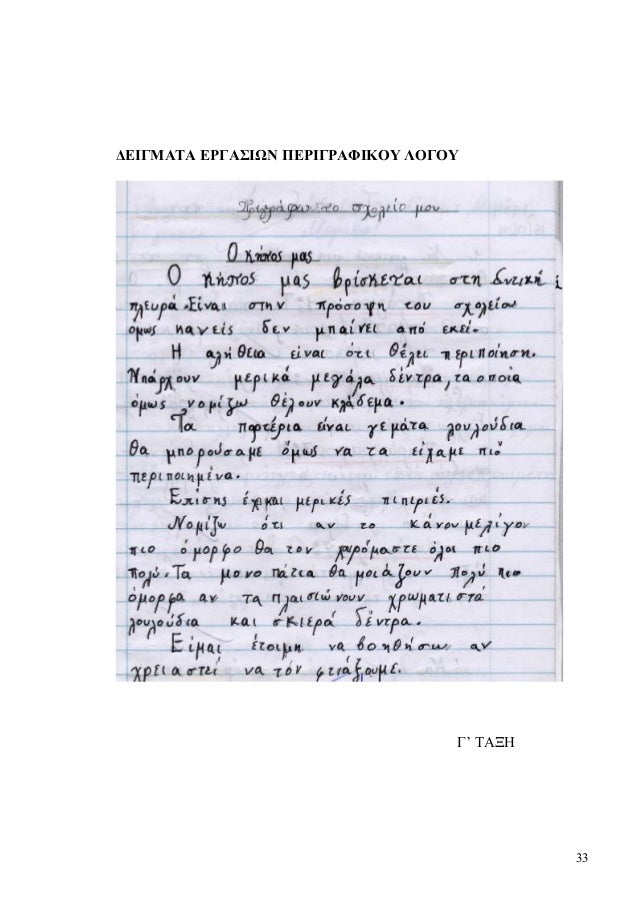 ΔΕΙΓΜΑΤΑ ΕΡΓΑΣΙΩΝ ΠΕΡΙΓΡΑΦΙΚΟΥ ΛΟΓΟΥ
το σχολείο μου
Ο κήπος μας
Ο κήπος μας βρίσκεται στη δυτική
πλευρά. Είναι στην πρόσοψη του σχολείου
όμως κανείς δεν μπαίνει από εκεί.
Η αλήθεια είναι ότι θέλει περιποίηση.
Υπάρχουν μερικά μεγάλα δέντρα, τα οποία
όμως νομίζω θέλουν κλάδεμα.
Τα παρτέρια είναι γεμάτα λουλούδια
θα μπορούσαμε όμως να τα είχαμε πιο
περιποιημένα.
Επίσης έχι και μερικές πιπεριές.
Νομίζω ότι αν το κάνουμε λίγον
πιο όμορφο θα τον χαιρόμαστε όλοι πιο
πολύ. Τα μονοπάτια θα μοιάζουν πολύ πιο
όμορφα αν τα πλαισιώνουν χρωματιστά
λουλούδια και σκιερά δέντρα.
Είμαι έτοιμη να βοηθήσω αν
χρειαστεί να τόν φτιάξουμε.
Γ’ ΤΑΞΗ
33